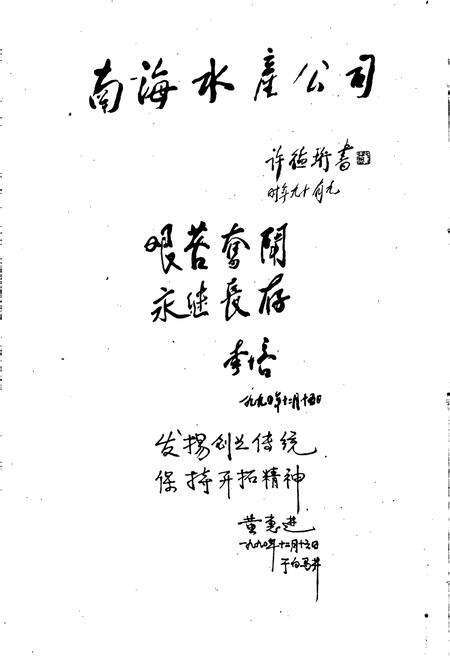 南海水產公司
许德珩書
时年九十有九
艰苦奮鬪
永继長存
李培
一九九〇年十二月十五日
发揚创业传统
保持开拓精神
黄惠进
一九九〇年十二月十六日
于白马井